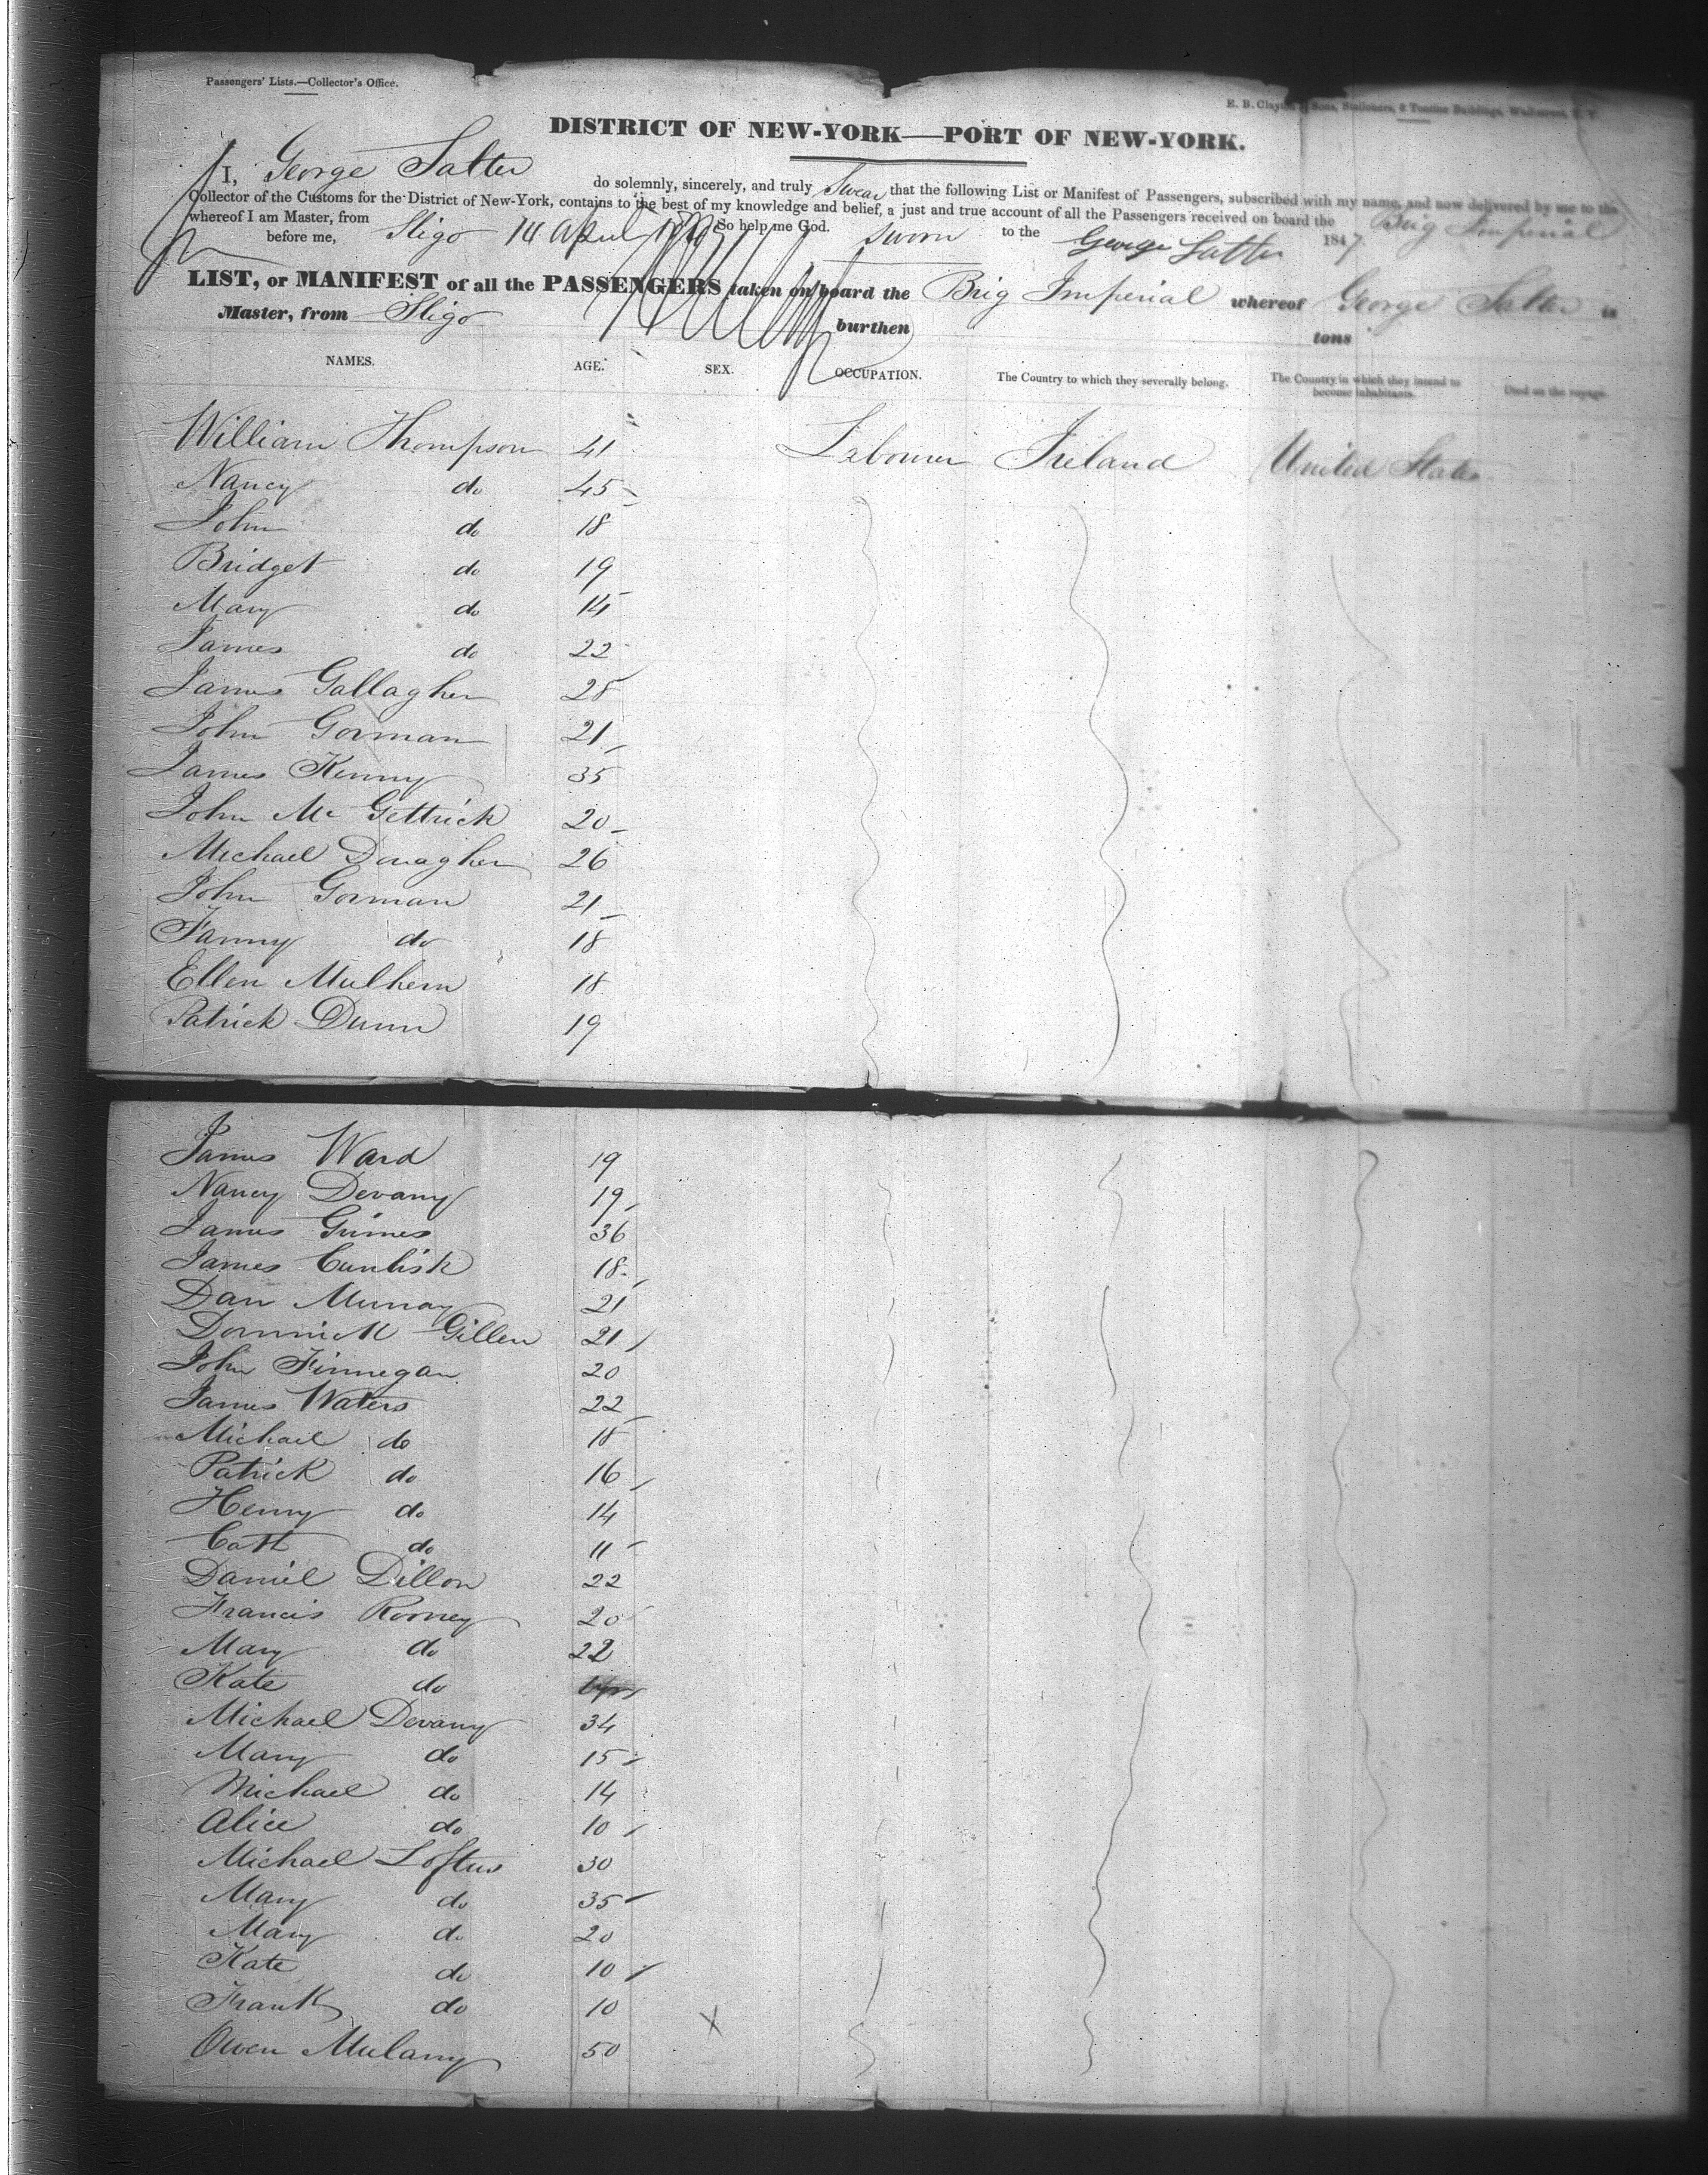 Passengers' Lists.—Collector's Office.
E. B. Clayton & Sons, Stationers, 8 Tontine Buildings, Wall-street, N. Y.
DISTRICT OF NEW-YORK—PORT OF NEW-YORK.
I, George Salter do solemnly, sincerely, and truly Swear that the following List or Manifest of Passengers, subscribed with my name, and now delivered by me to the
Collector of the Customs for the District of New-York, contains to the best of my knowledge and belief, a just and true account of all the Passengers received on board the Brig Imperial
whereof I am Master, from Sligo So help me God.
before me, 14 April Sworn to the George Salter 1847.
LIST, or MANIFEST of all the PASSENGERS taken on board the Brig Imperial whereof George Salter is
Master, from Sligo burthen tons
NAMES. AGE. SEX. OCCUPATION. The Country to which they severally belong. The Country in which they intend to become inhabitants. Died on the voyage.
William Thompson 41 Labourer Ireland United States
Nancy do 45
John do 18
Bridget do 19
Mary do 15
James do 22
James Gallagher 25
John Gorman 21
James Kenny 35
John Mc Gettrick 20
Michael Donagher 26
John Gorman 21
Fanny do 18
Ellen Mulhern 18
Patrick Dunn 19
James Ward 19
Nancy Devany 19
James Grimes 36
James Cunlish 18
Dan Murray 21
Dominick Gillen 21
John Finnegan 20
James Waters 22
Michael do 18
Patrick do 16
Henry do 14
Cath do 11
Daniel Dillon 22
Francis Rooney 20
Mary do 22
Kate do
Michael Devany 34
Mary do 15
Michael do 14
Alice do 10
Michael Loftus 30
Mary do 35
Mary do 20
Kate do 10
Frank do 10 X
Owen Mulany 50